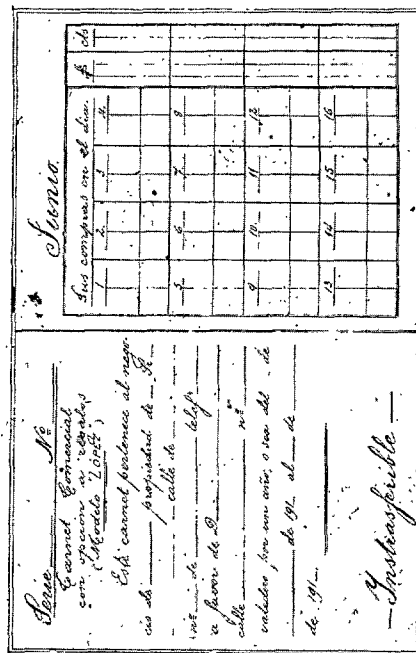 Serie Nº
Carnet Comercial
con opción a regalos
(Modelo "LÓPEZ")
Este carnet pertenece al nego-
cio de propiedad de D.
calle de
nº de telef
a favor de D.
calle nº
valedero por un año, o sea del de
de 191 al de
de 191
Instrasferible
Junio.
Sus compras en el día. $ cts
1 2 3 4
5 6 7 8
9 10 11 12
13 14 15 16